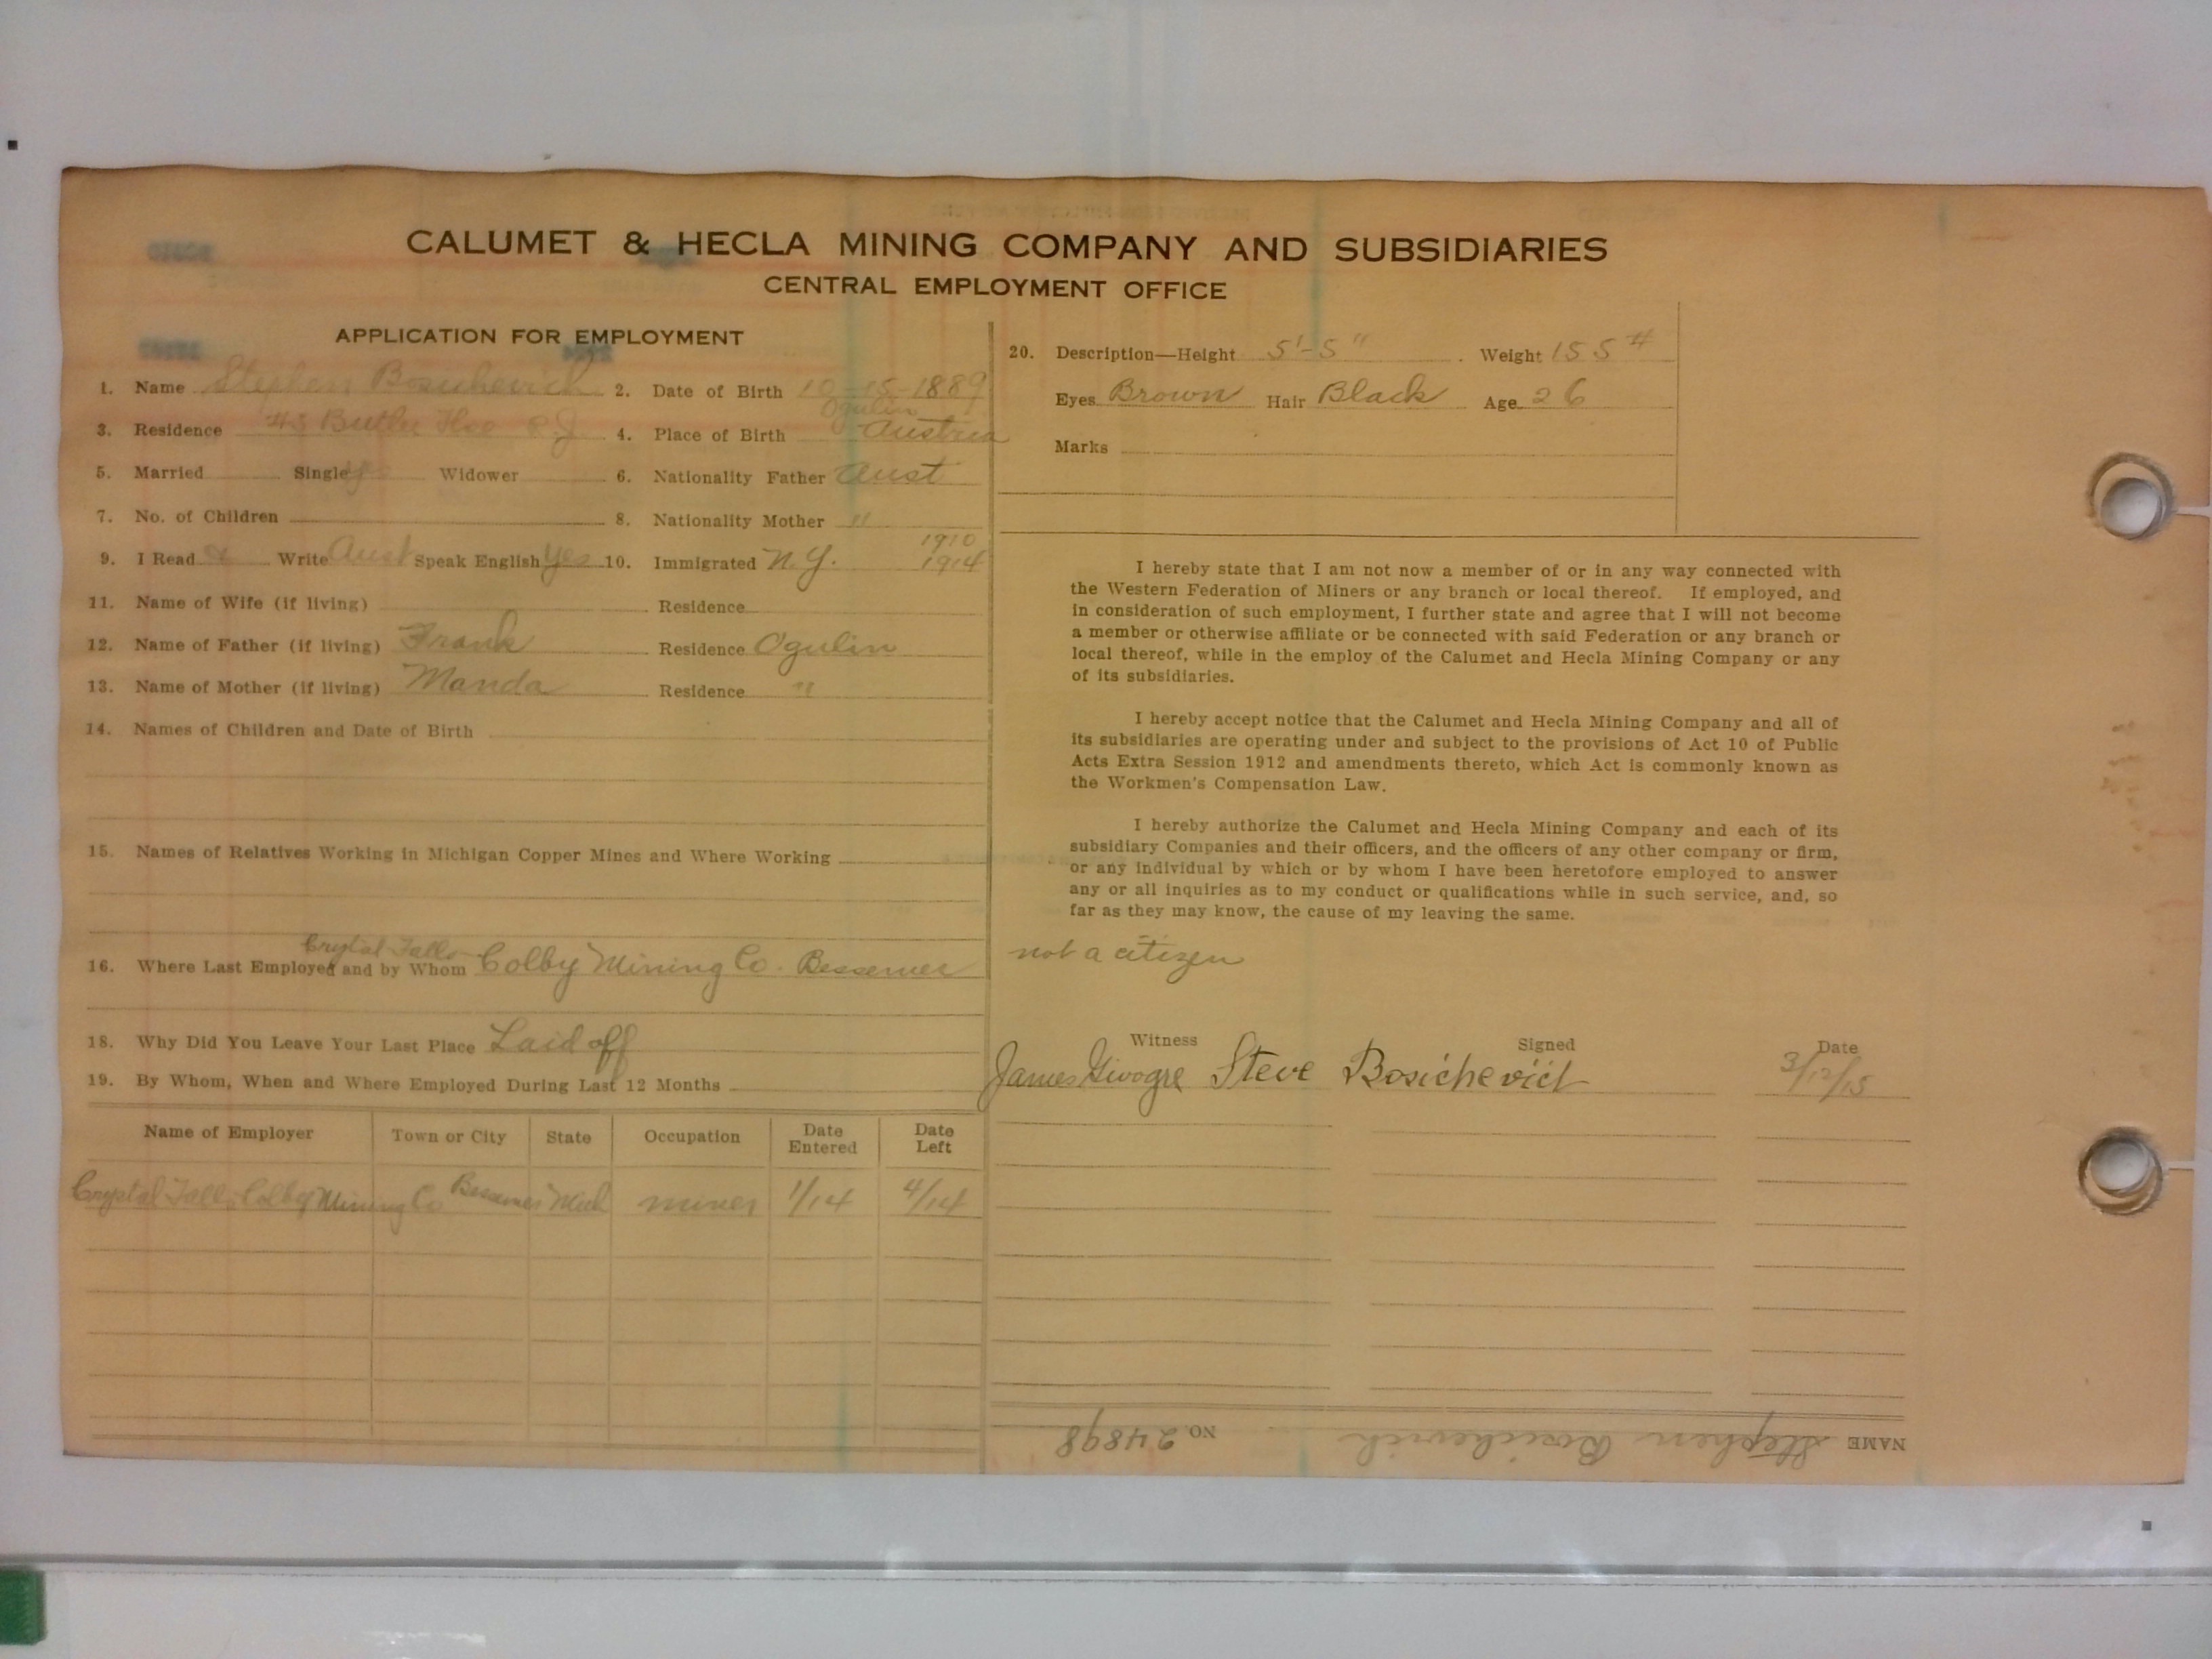 CALUMET & HECLA MINING COMPANY AND SUBSIDIARIES
CENTRAL EMPLOYMENT OFFICE
APPLICATION FOR EMPLOYMENT
1. Name Stephen Bosichevich 2. Date of Birth 10-15-1889
Ogulin
3. Residence 43 Butler 4. Place of Birth Austria
5. Married Single yes Widower 6. Nationality Father Aust
7. No. of Children 8. Nationality Mother "
1910
9. I Read & Write Aust Speak English yes 10. Immigrated N.Y. 1914
11. Name of Wife (if living) Residence
12. Name of Father (if living) Frank Residence Ogulin
13. Name of Mother (if living) Manda Residence "
14. Names of Children and Date of Birth
15. Names of Relatives Working in Michigan Copper Mines and Where Working
Crystal Falls
16. Where Last Employed and by Whom Colby Mining Co. Bessemer
18. Why Did You Leave Your Last Place Laid off
19. By Whom, When and Where Employed During Last 12 Months
Name of Employer Town or City State Occupation Date Entered Date Left
Crystal Falls Colby Mining Co Bessemer Mich miner 1/14 4/14
20. Description—Height 5'-5" Weight 155#
Eyes Brown Hair Black Age 26
Marks
I hereby state that I am not now a member of or in any way connected with
the Western Federation of Miners or any branch or local thereof. If employed, and
in consideration of such employment, I further state and agree that I will not become
a member or otherwise affiliate or be connected with said Federation or any branch or
local thereof, while in the employ of the Calumet and Hecla Mining Company or any
of its subsidiaries.
I hereby accept notice that the Calumet and Hecla Mining Company and all of
its subsidiaries are operating under and subject to the provisions of Act 10 of Public
Acts Extra Session 1912 and amendments thereto, which Act is commonly known as
the Workmen's Compensation Law.
I hereby authorize the Calumet and Hecla Mining Company and each of its
subsidiary Companies and their officers, and the officers of any other company or firm,
or any individual by which or by whom I have been heretofore employed to answer
any or all inquiries as to my conduct or qualifications while in such service, and, so
far as they may know, the cause of my leaving the same.
not a citizen
Witness Signed Date
James Steve Bosichevich 3/12/15
NAME Stephen Bosichevich NO. 24898